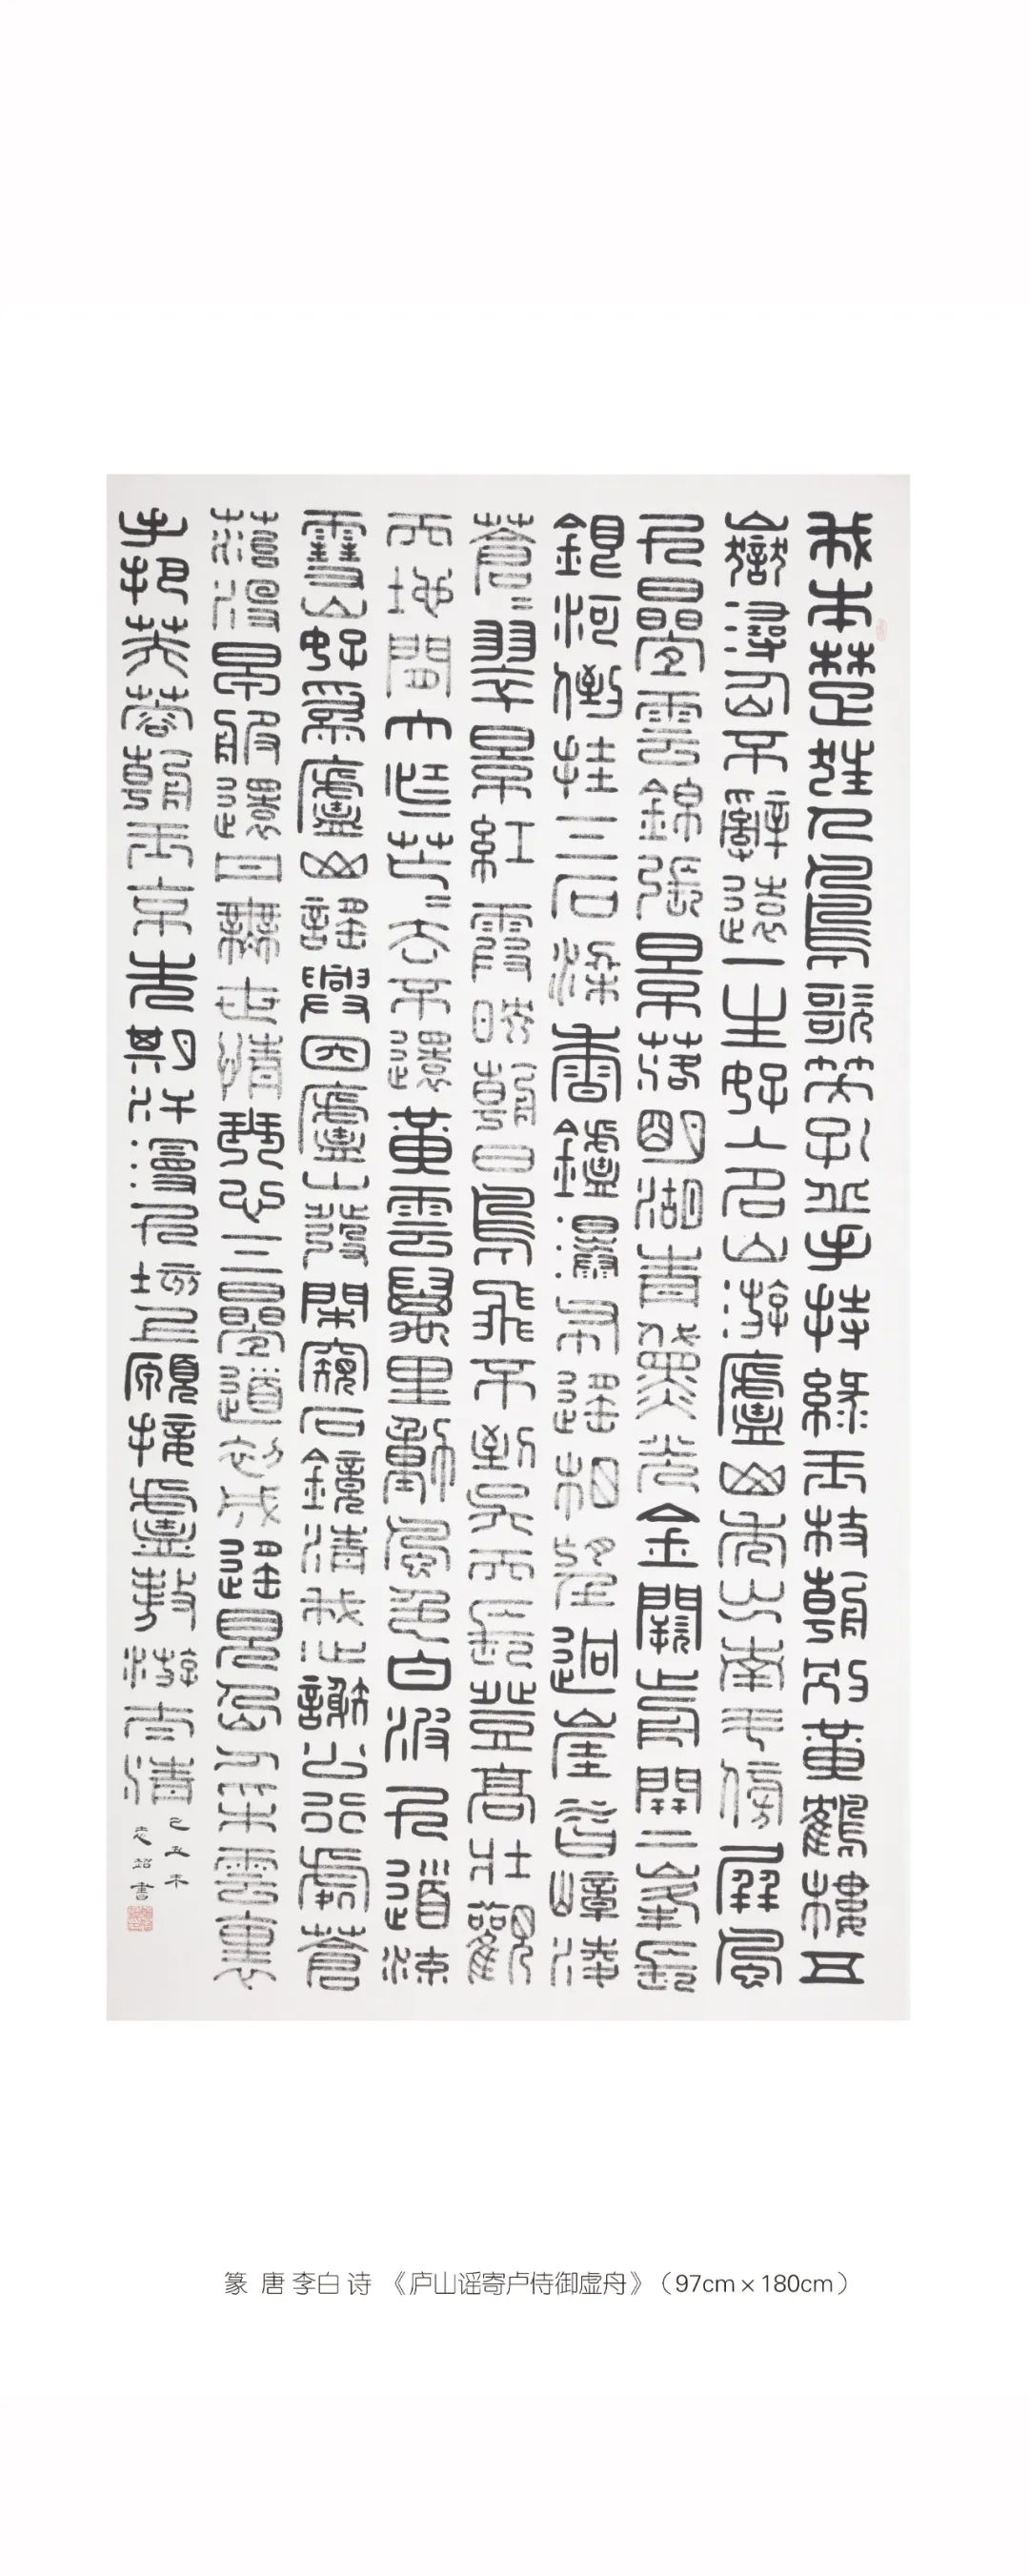 我本楚狂人鳳歌笑孔丘手持綠玉枝朝別黃鶴樓五
嶽尋仙不辭遠一生好入名山游廬山秀出南斗傍屏風
九疊雲錦張景落明湖青黛光金闕前開二峯長
銀河倒挂三石梁香鑪瀑布遥相望迴崖沓嶂淩
蒼〻翠景紅霞映朝日鳥飛不到吳天長登高壯觀
天地間大江茫〻去不還黃雲萬里動風色白波九道流
雪山好爲廬山謠興因廬山發閑窺石鏡清我心謝公行處蒼
苔没早服還丹無世情琴心三疊道初成遥見仙人采雲裏
手把芙蓉朝玉京先期汗漫九垓上願接盧敖游太清
己丑
志 書
篆 唐 李白 诗 《庐山谣寄卢侍御虚舟》（97cm×180cm）